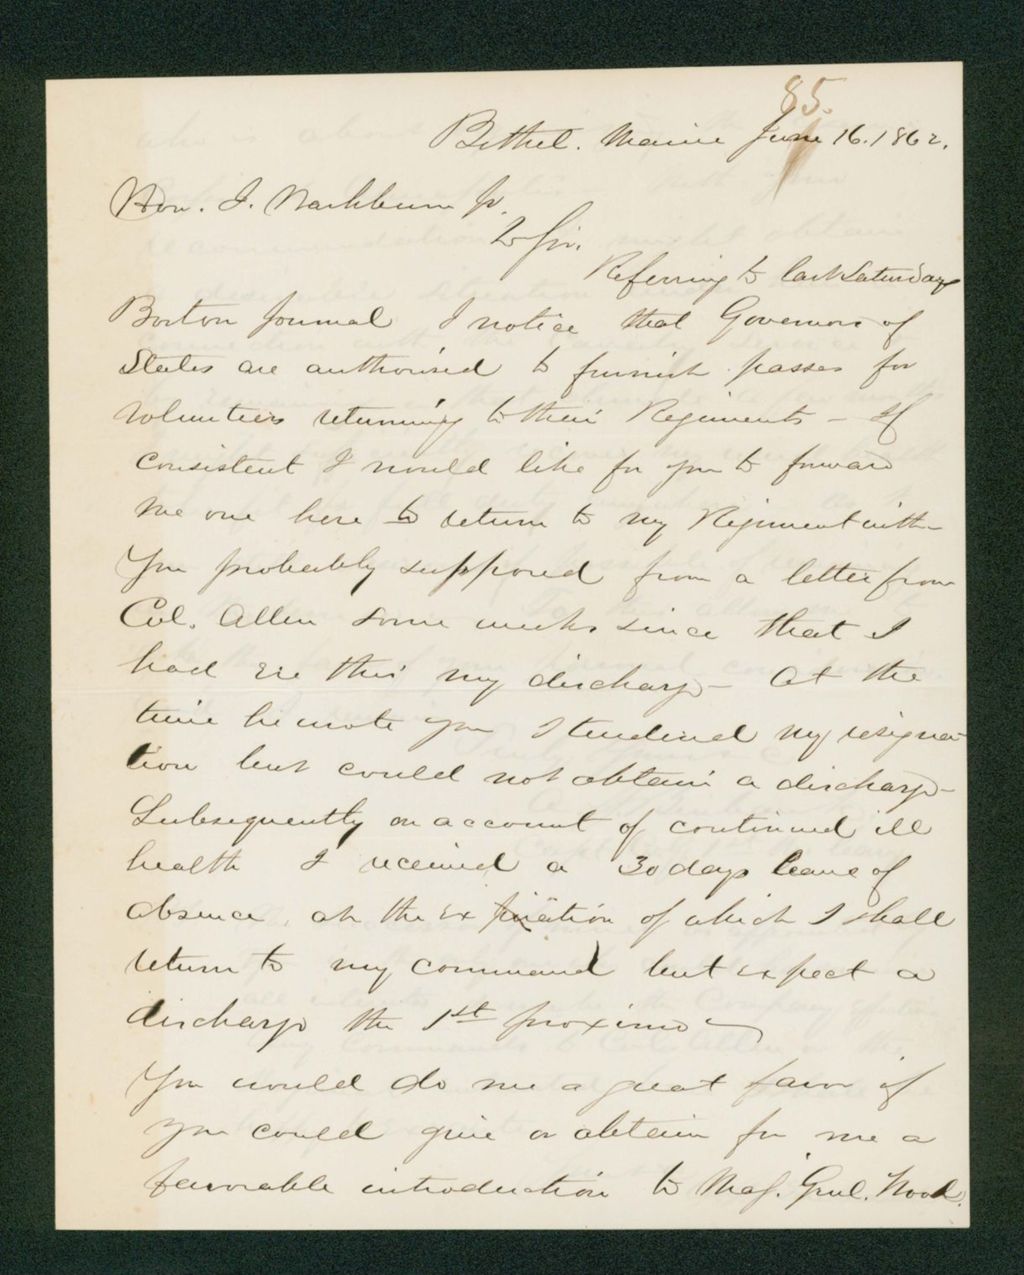 85.
Bethel. Maine June 16. 1862.
Hon. I. Washburn Jr.
Dr Sir.
Referring to last Saturdays
Boston Journal I notice that Governors of
States are authorised to furnish passes for
volunteers returning to their Regiments - If
consistent I would like for you to forward
me one here to return to my Regiment with -
You probably supposed from a letter from
Col. Allen some weeks since that I
had ere this my discharge - At the
time he wrote you I tendered my resigna-
tion but could not obtain a discharge -
Subsequently on account of continued ill
health I received a 30 days leave of
absence, at the expiration of which I shall
return to my command but expect a
discharge the 1st proximo -
You would do me a great favor if
you could give or obtain for me a
favorable introduction to Maj. Genl. Wool.